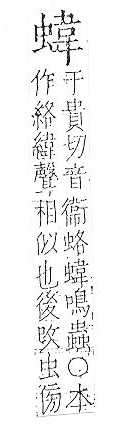 蟑
于貴切音衞蛒蟑鳴蟲〇本
作絡緯聲相似也後改虫傍